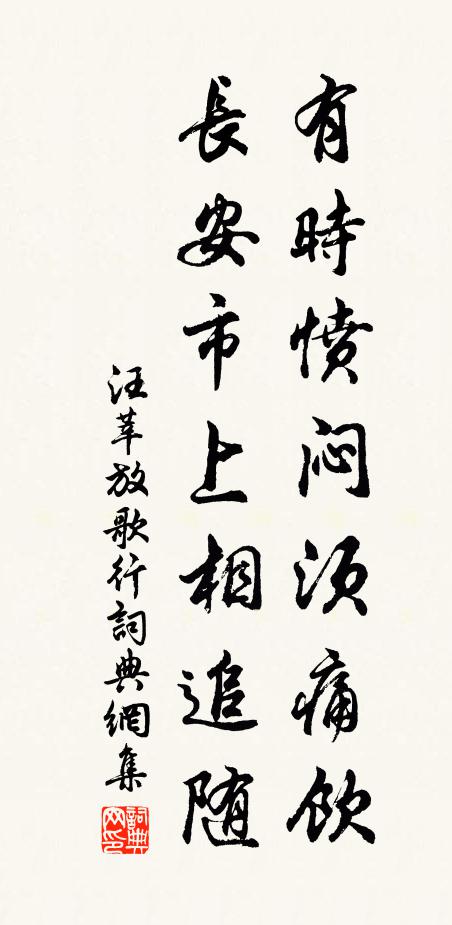 有時憤悶須痛飲
長安市上相追随
汪莘放歌行詞典網集
詞典網印